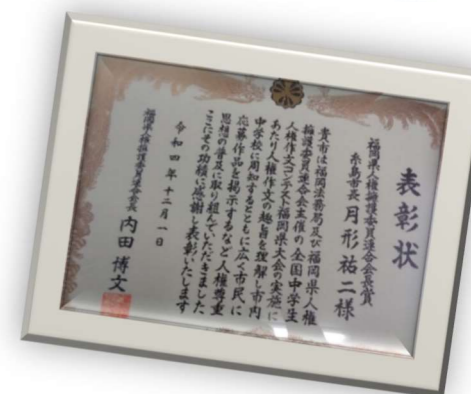 表彰状
福岡県人権擁護委員連合会長賞
糸島市長 月形祐二様
貴市は福岡法務局及び福岡県人権
擁護委員連合会主催の全国中学生
人権作文コンテスト福岡県大会の実施に
あたり人権作文の趣旨を理解し市内
中学校に周知するとともに広く市民に
応募作品を掲示するなど人権尊重
思想の普及に取り組んでいただきました
ここにその功績に感謝し表彰いたします
令和四年十二月一日
福岡県人権擁護委員連合会長
内田博文